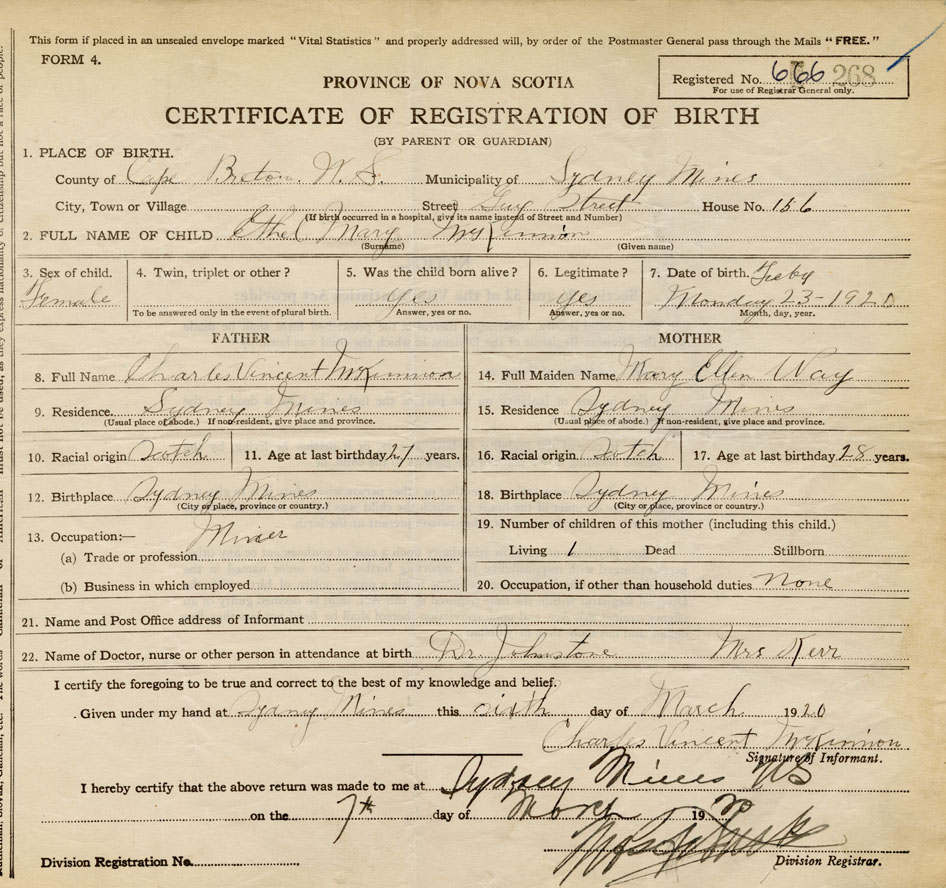 This form if placed in an unsealed envelope marked "Vital Statistics" and properly addressed will, by order of the Postmaster General pass through the Mails "FREE."
FORM 4.
PROVINCE OF NOVA SCOTIA
Registered No. 666 268
For use of Registrar General only.
CERTIFICATE OF REGISTRATION OF BIRTH
(BY PARENT OR GUARDIAN)
1. PLACE OF BIRTH.
County of Cape Breton. N. S. Municipality of Sydney Mines
City, Town or Village Street Guy Street House No. 186
(If birth occurred in a hospital, give its name instead of Street and Number)
2. FULL NAME OF CHILD Ethel Mary McKinnon
(Surname) (Given name)
3. Sex of child. 4. Twin, triplet or other? 5. Was the child born alive? 6. Legitimate? 7. Date of birth. Feby
Female Yes Yes Monday 23-1920
To be answered only in the event of plural birth. Answer, yes or no. Answer, yes or no. Month, day, year.
FATHER MOTHER
8. Full Name Charles Vincent McKinnon 14. Full Maiden Name Mary Ellen Way
9. Residence. Sydney Mines 15. Residence Sydney Mines
(Usual place of abode.) If non-resident, give place and province. (Usual place of abode.) If non-resident, give place and province.
10. Racial origin Scotch 11. Age at last birthday 27 years. 16. Racial origin Scotch 17. Age at last birthday 28 years.
12. Birthplace Sydney Mines 18. Birthplace Sydney Mines
(City or place, province or country.) (City or place, province or country.)
13. Occupation:— Miner 19. Number of children of this mother (including this child.)
(a) Trade or profession Living 1 Dead Stillborn
(b) Business in which employed 20. Occupation, if other than household duties. None
21. Name and Post Office address of Informant
22. Name of Doctor, nurse or other person in attendance at birth Dr. Johnstone Mrs Kerr
I certify the foregoing to be true and correct to the best of my knowledge and belief.
Given under my hand at Sydney Mines this sixth day of March 1920
Charles Vincent McKinnon
Signature of Informant.
I hereby certify that the above return was made to me at Sydney Mines NS
on the 7th day of March 1920
Division Registration No. Division Registrar.